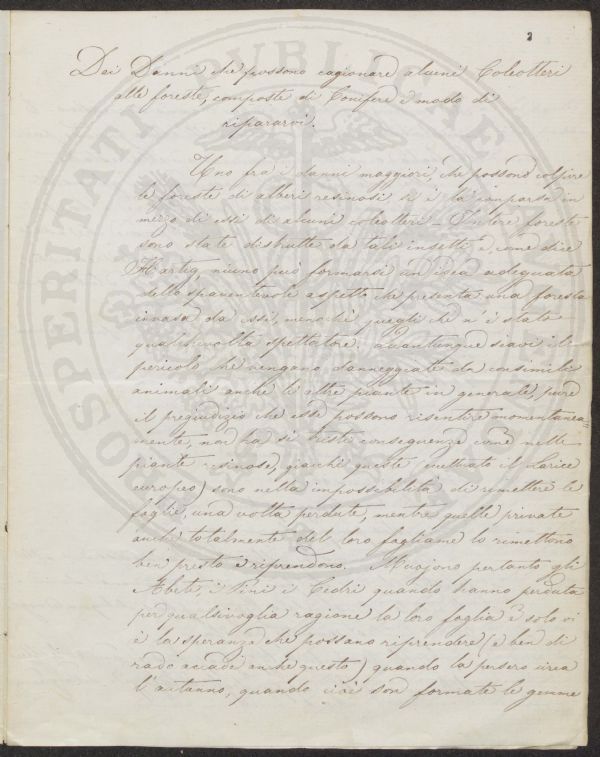 Dei Danni che possono cagionare alcuni Coleotteri
alle foreste, composte di Conifere e modo di
ripararvi.
Uno fra i danni maggiori, che possono colpire
le foreste di alberi resinosi si è la comparsa in
mezzo di essi di alcuni coleotteri — Intere foreste
sono state distrutte da tali insetti e, come dice
Hartig, niuno può formarsi un idea adeguata
dello spaventevole aspetto che presenta una foresta
invasa da essi, menochè quegli che n'è stato
qualchevolta spettatore. Quantunque siavi il
pericolo che vengano danneggiate da consimili
animali anche le altre piante in generale, pure
il pregiudizio che esse possono risentire momentanea=
mente, non ha sì tristi conseguenze come nelle
piante resinose, giacchè queste (eccettuato il Larice
europeo) sono nella impossibilità di rimettere le
foglie, una volta perdute, mentre quelle private
anche totalmente del loro fogliame lo rimettono
ben presto e riprendono. Muojono pertanto gli
Abeti, i Pini i Cedri quando hanno perduta
per qualsivoglia ragione la loro foglia e solo vi
è la speranza che possano riprendere (e ben di
rado accade anche questo) quando la persero circa
l'autunno, quando cioè son formate le gemme
PROSPERITATI PUBLICAE